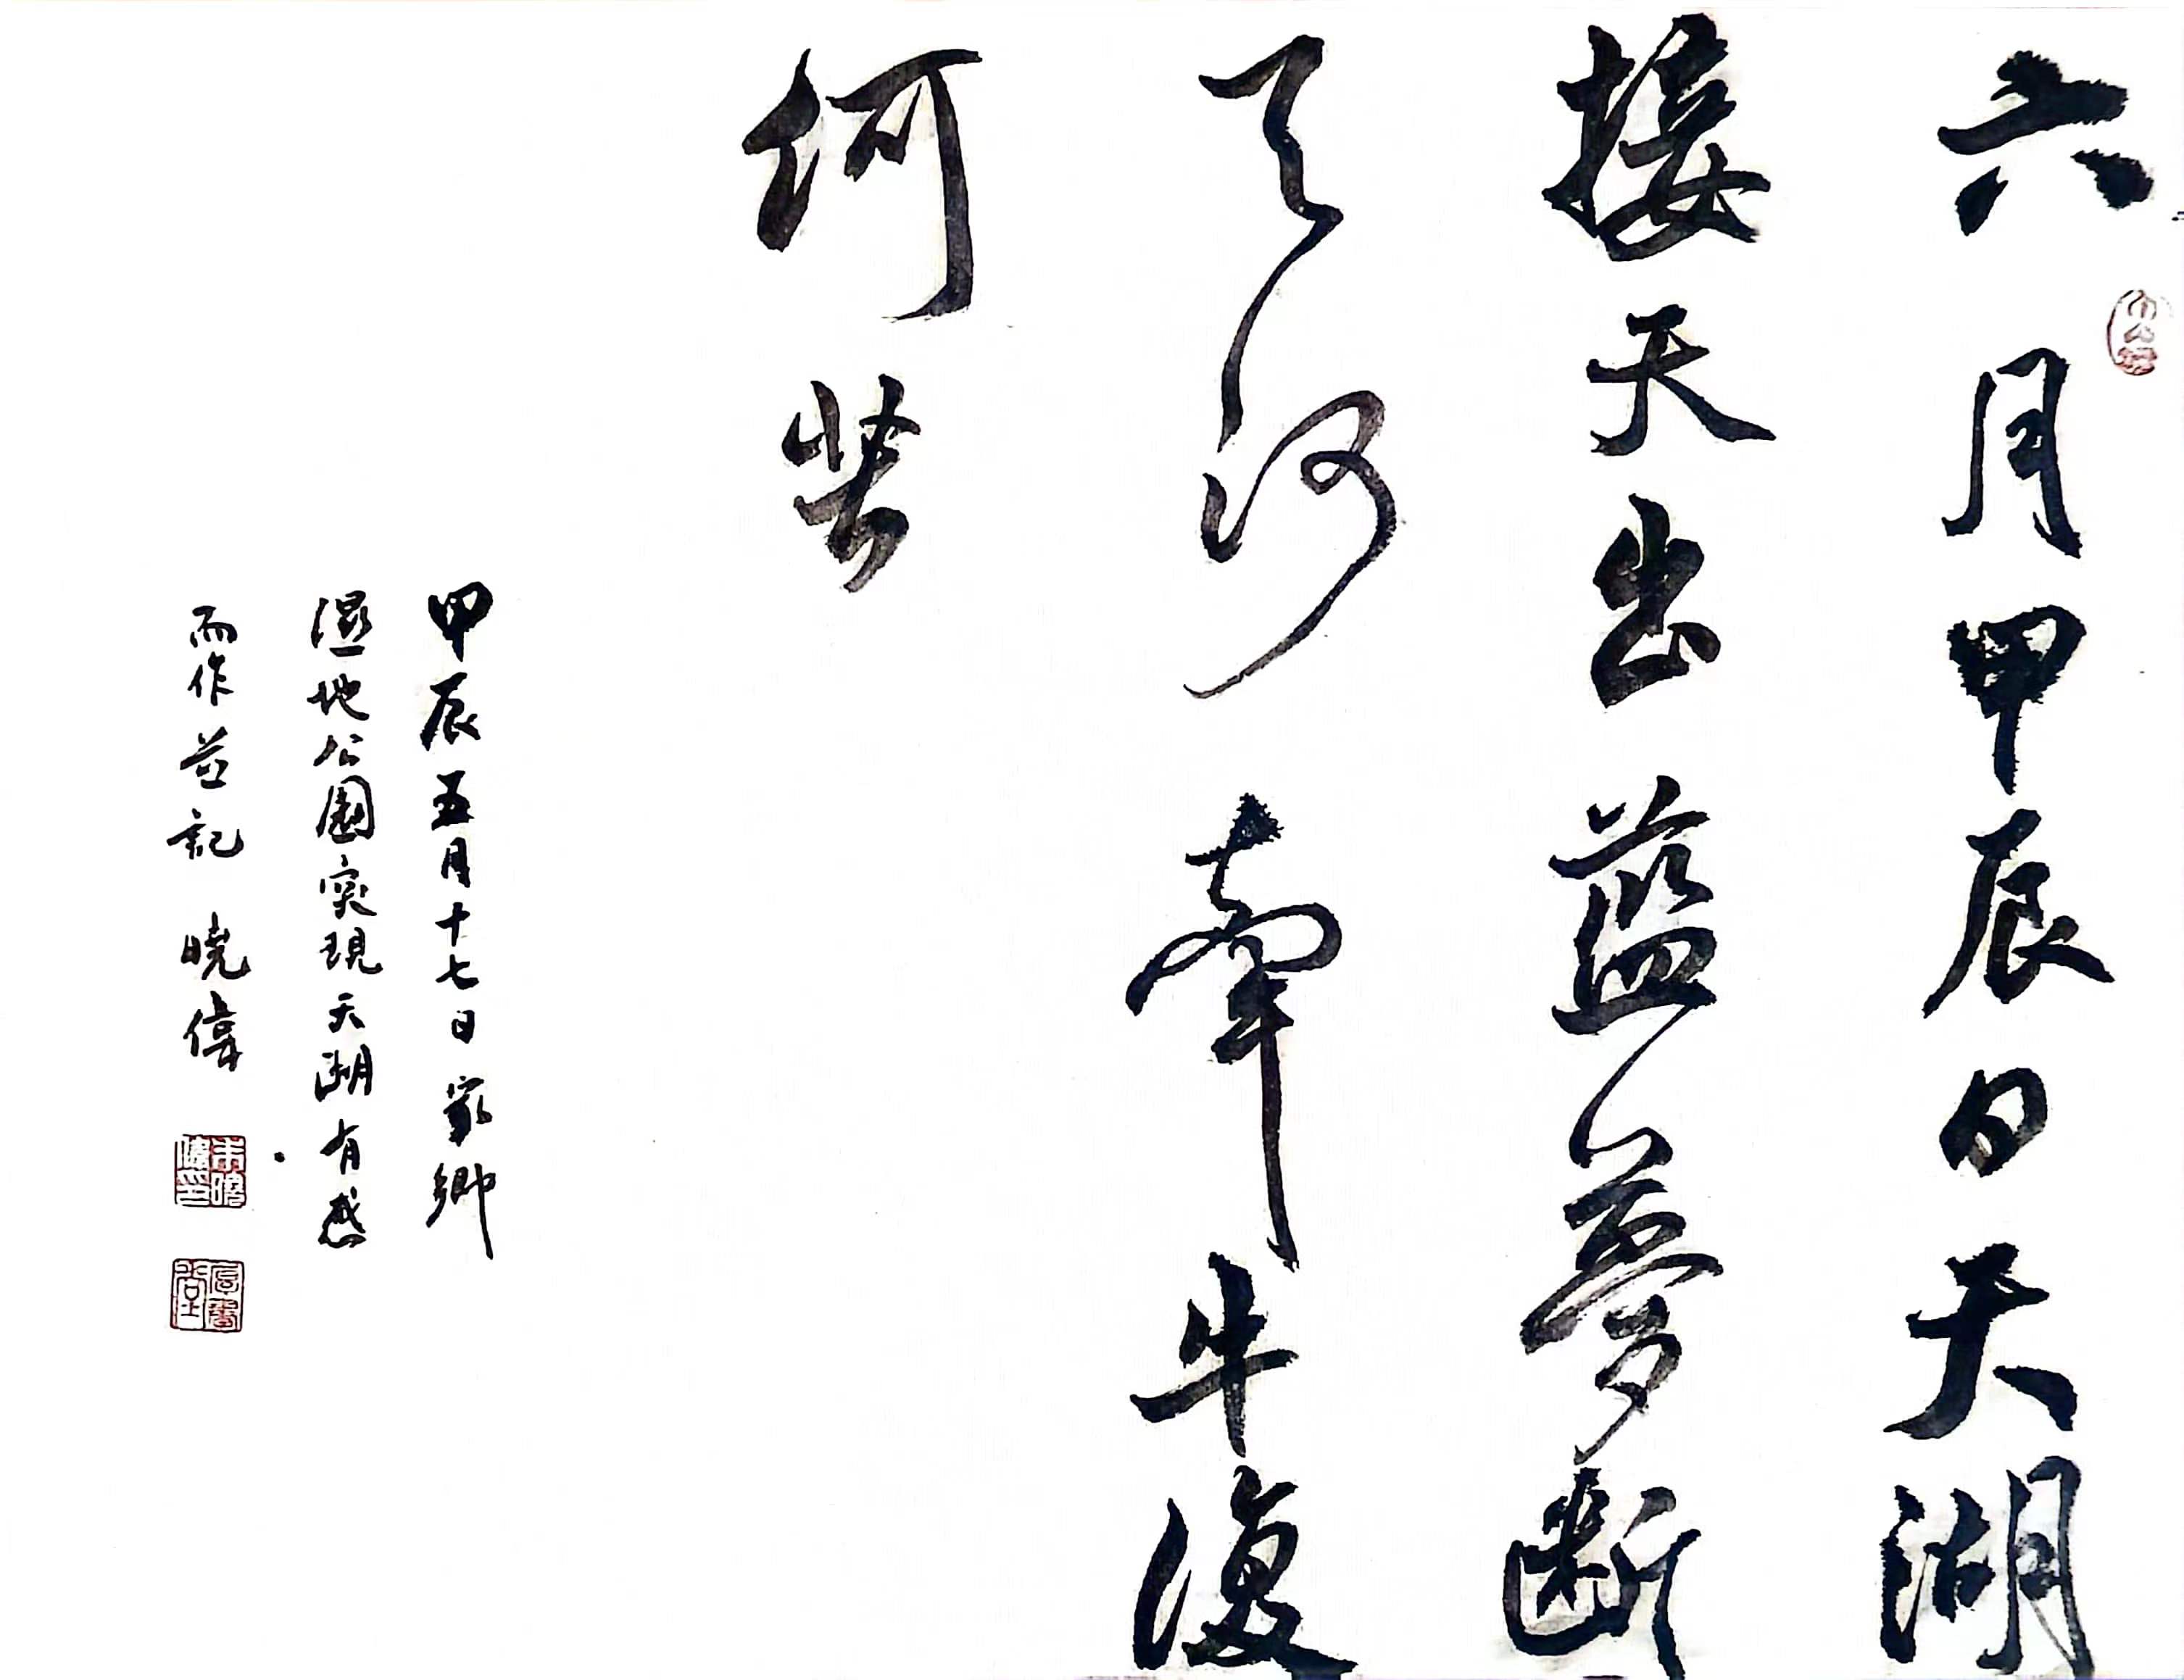 六月甲辰日天湖
接天出蓝夢断
天河牽牛復
何苦
甲辰五月十七日家鄉
濕地公園突現天湖有感
而作并記 曉偉